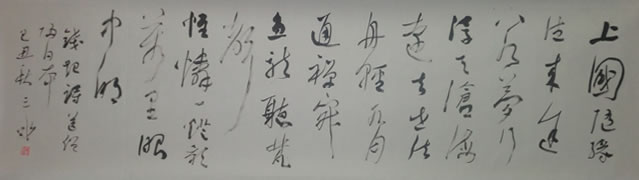 上國随緣
住来途
若夢行
浮天滄海
遠去世法
舟輕水月
通禪寂
魚龍聽梵
聲
惟憐一燈影
萬里眼
中明
錢起詩送僧
歸日本
己丑秋三